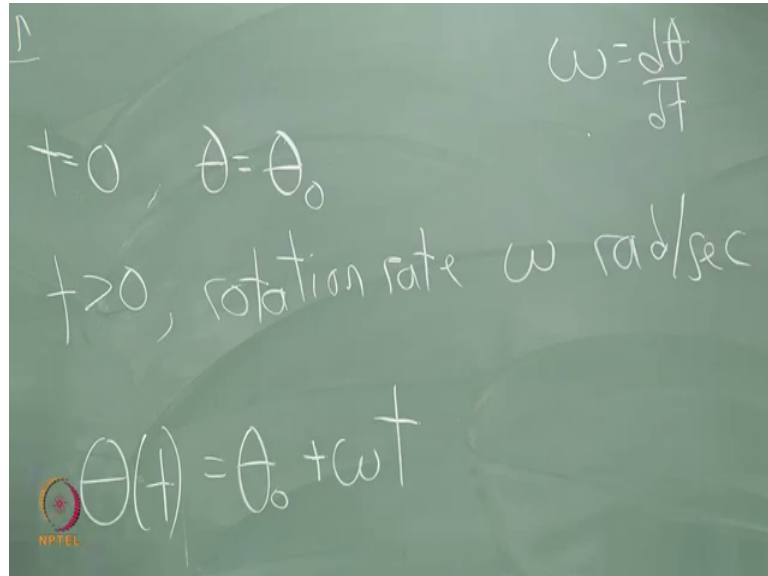 ω = dθ/dt
t=0, θ = θ₀
t>0, rotation rate ω rad/sec
θ(t) = θ₀ + ωt
NPTEL